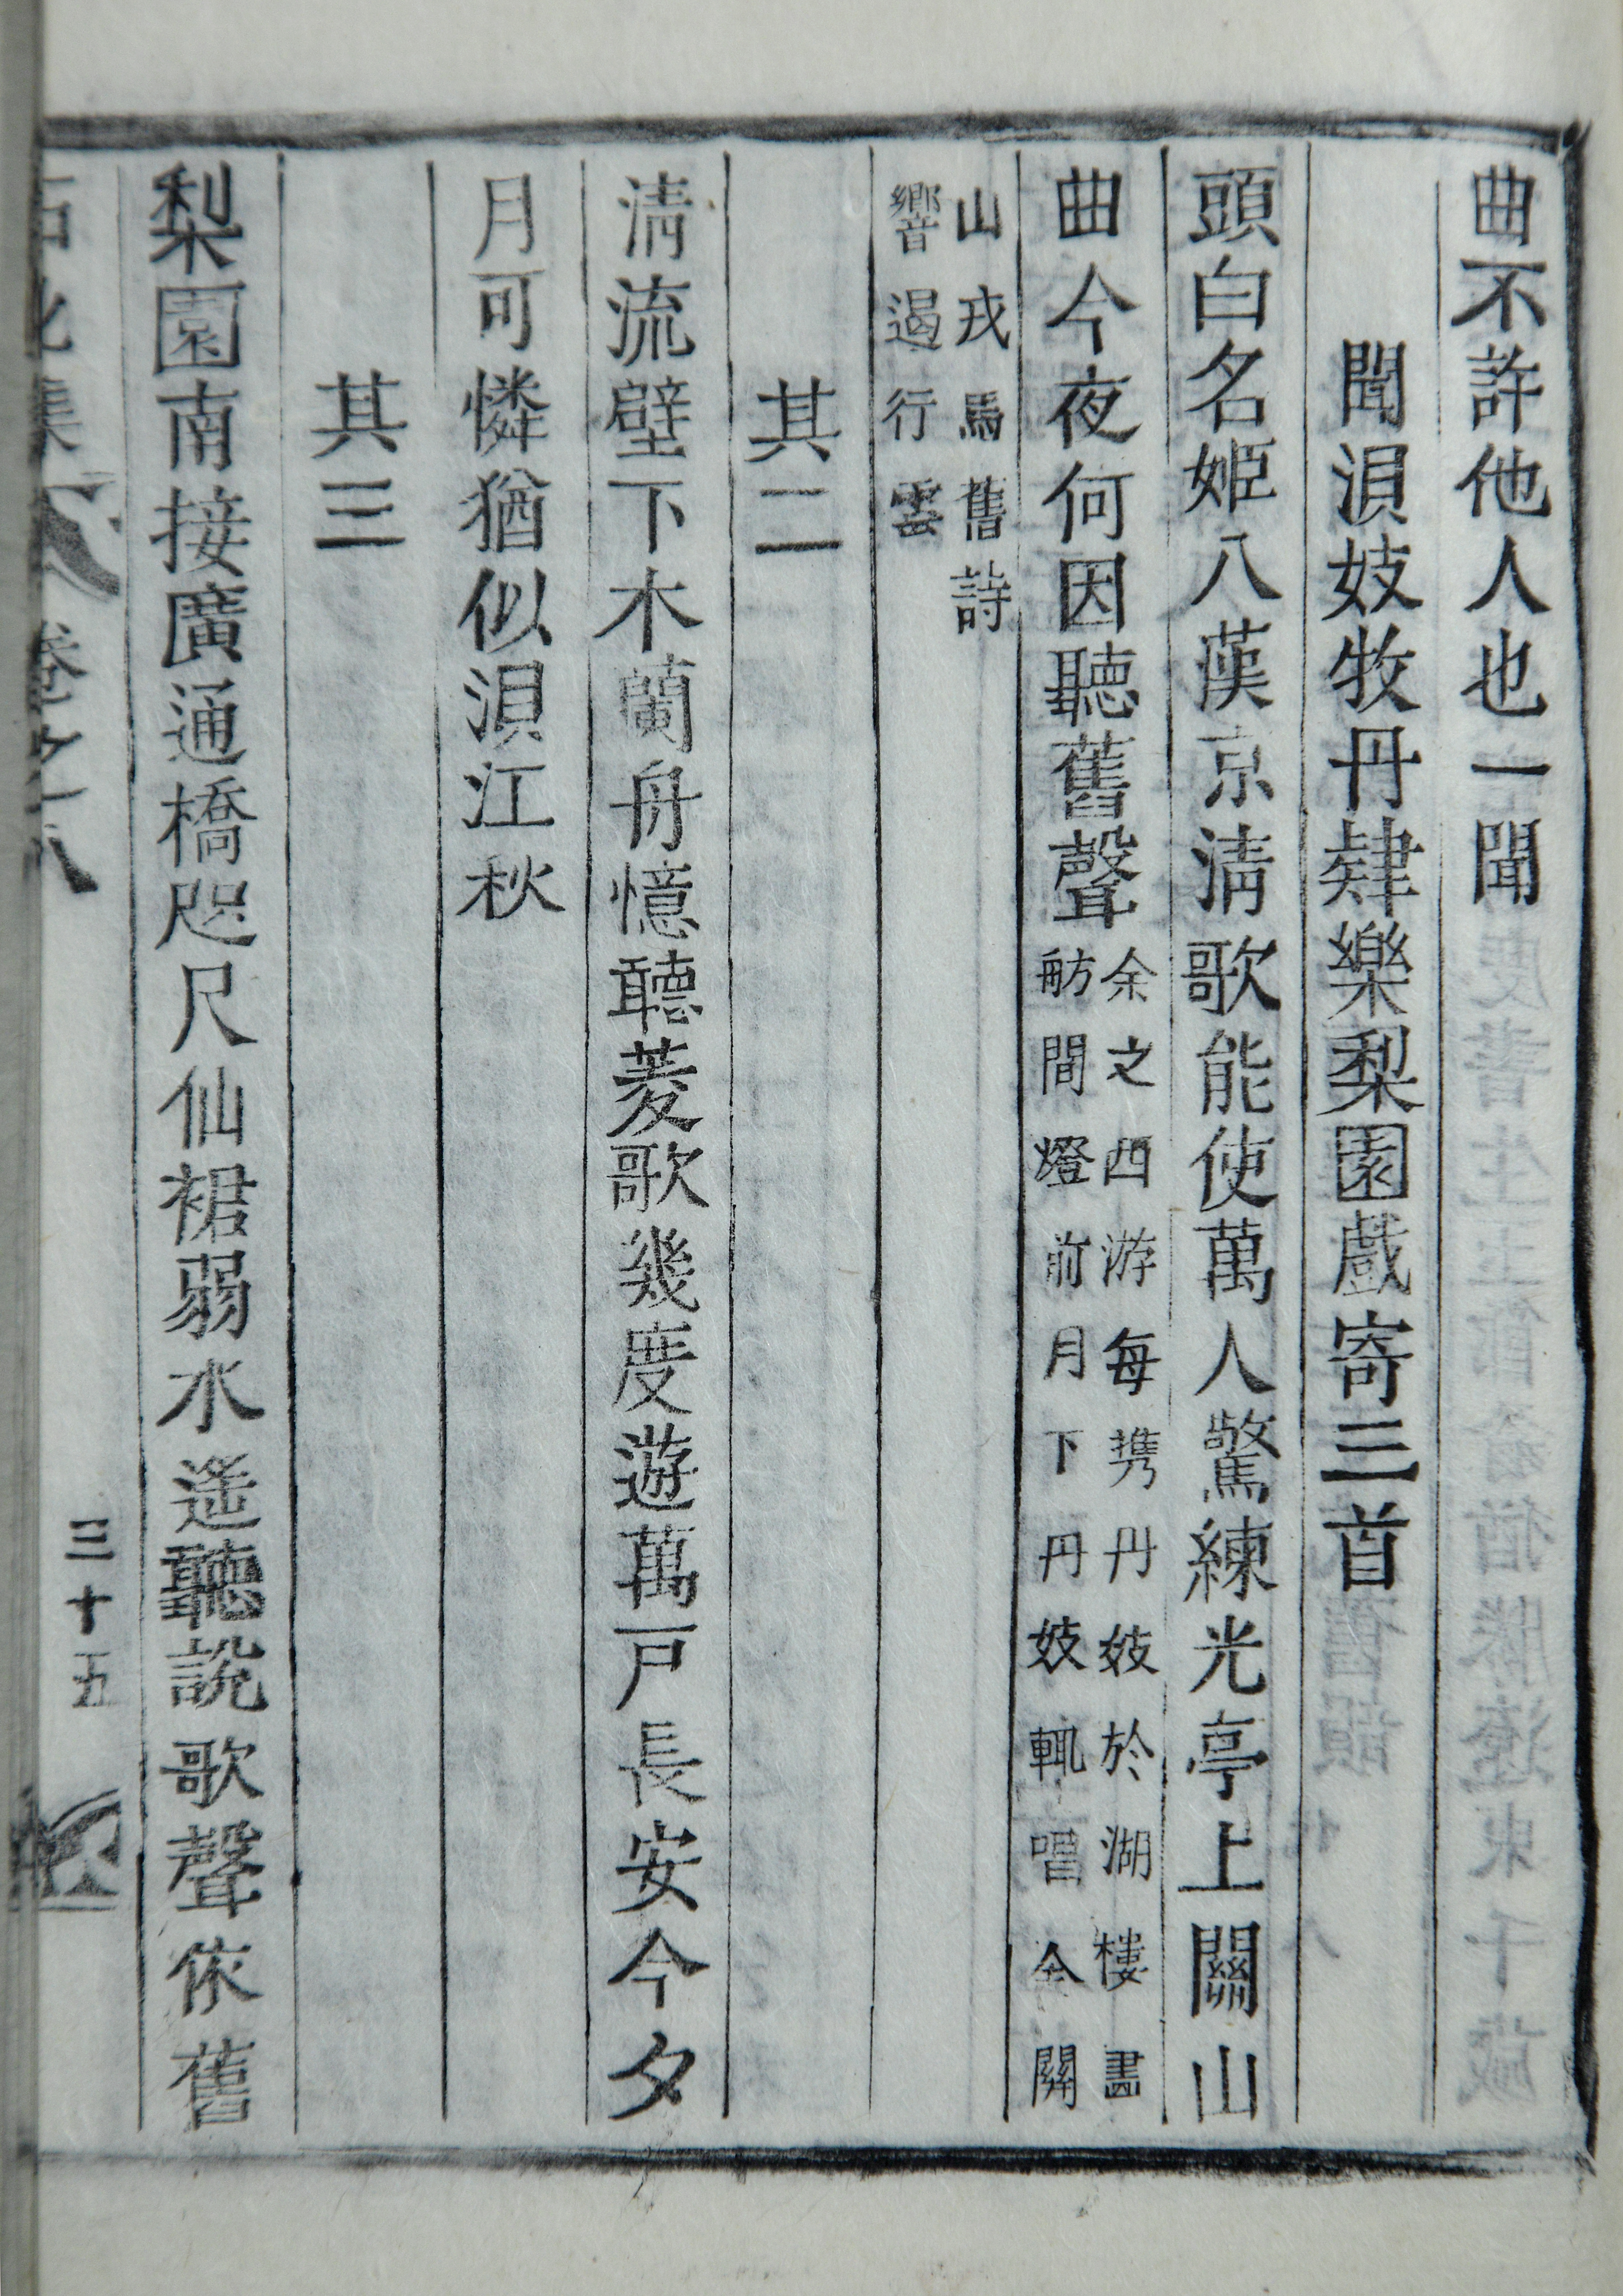 曲不許他人也一聞
聞浿妓牧丹肄樂梨園戲寄三首
頭白名姬八漢京清歌能使萬人驚練光亭上關山
曲今夜何因聽舊聲
余之西游每携丹妓於湖樓畵
舫間燈前月下丹妓輒唱今關
山戎馬舊詩
響遏行雲
其二
清流壁下木蘭舟憶聽菱歌幾度遊萬戶長安今夕
月可憐猶似浿江秋
其三
梨園南接廣通橋咫尺仙裙弱水遙聽說歌聲依舊
石北集 卷之八
三十五